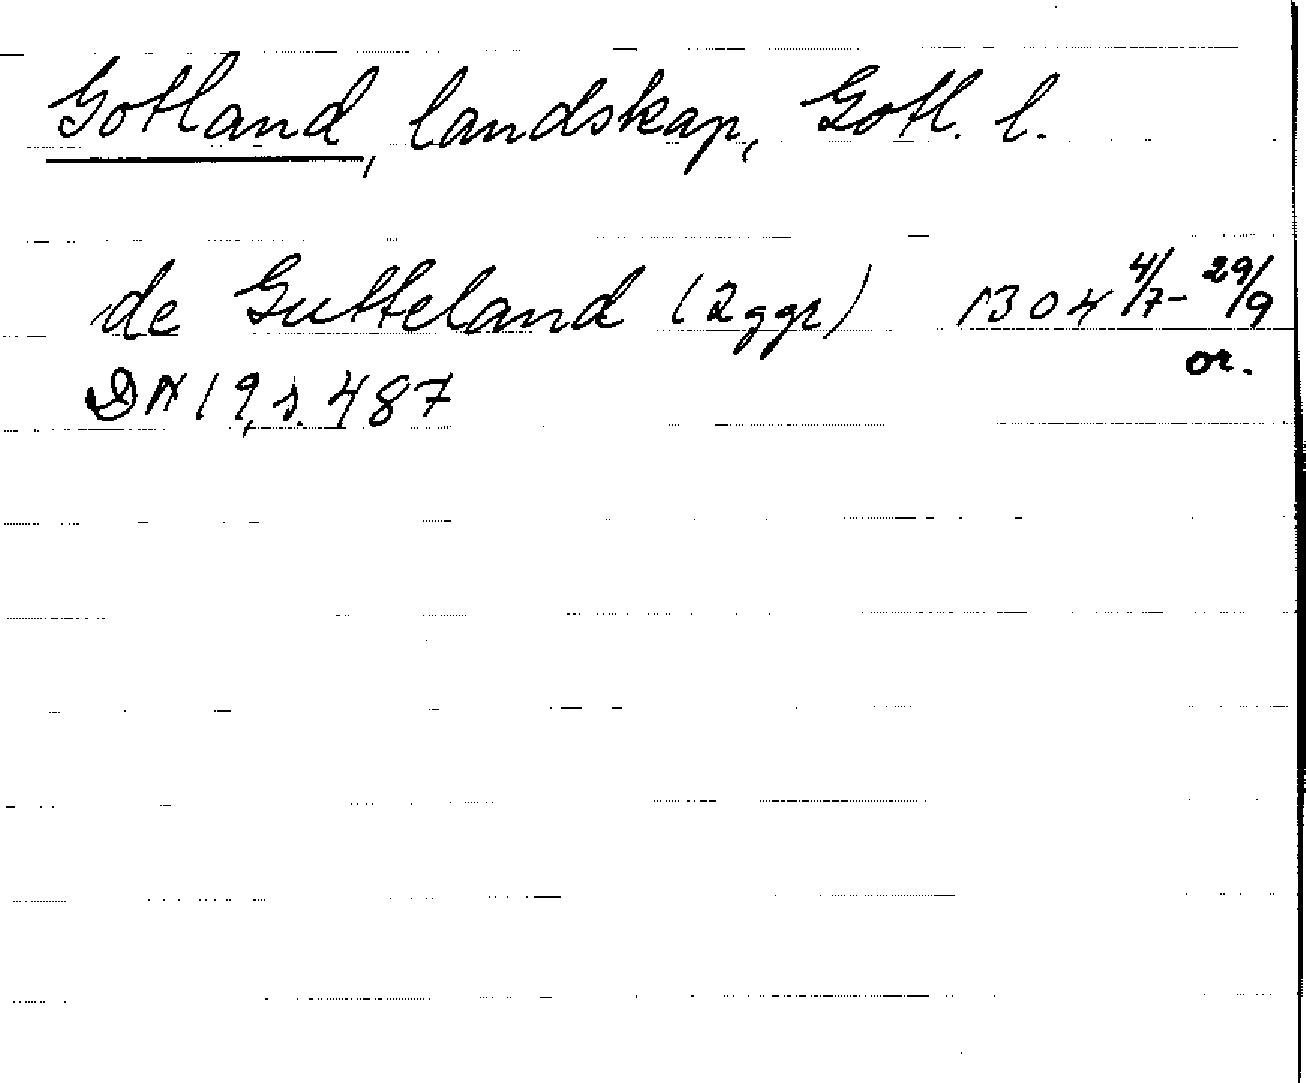 Gotland, landskap, Gotl. l.
de Gutteland (2 ggr) 1304 4/7- 29/9
or.
DN 19, s. 487